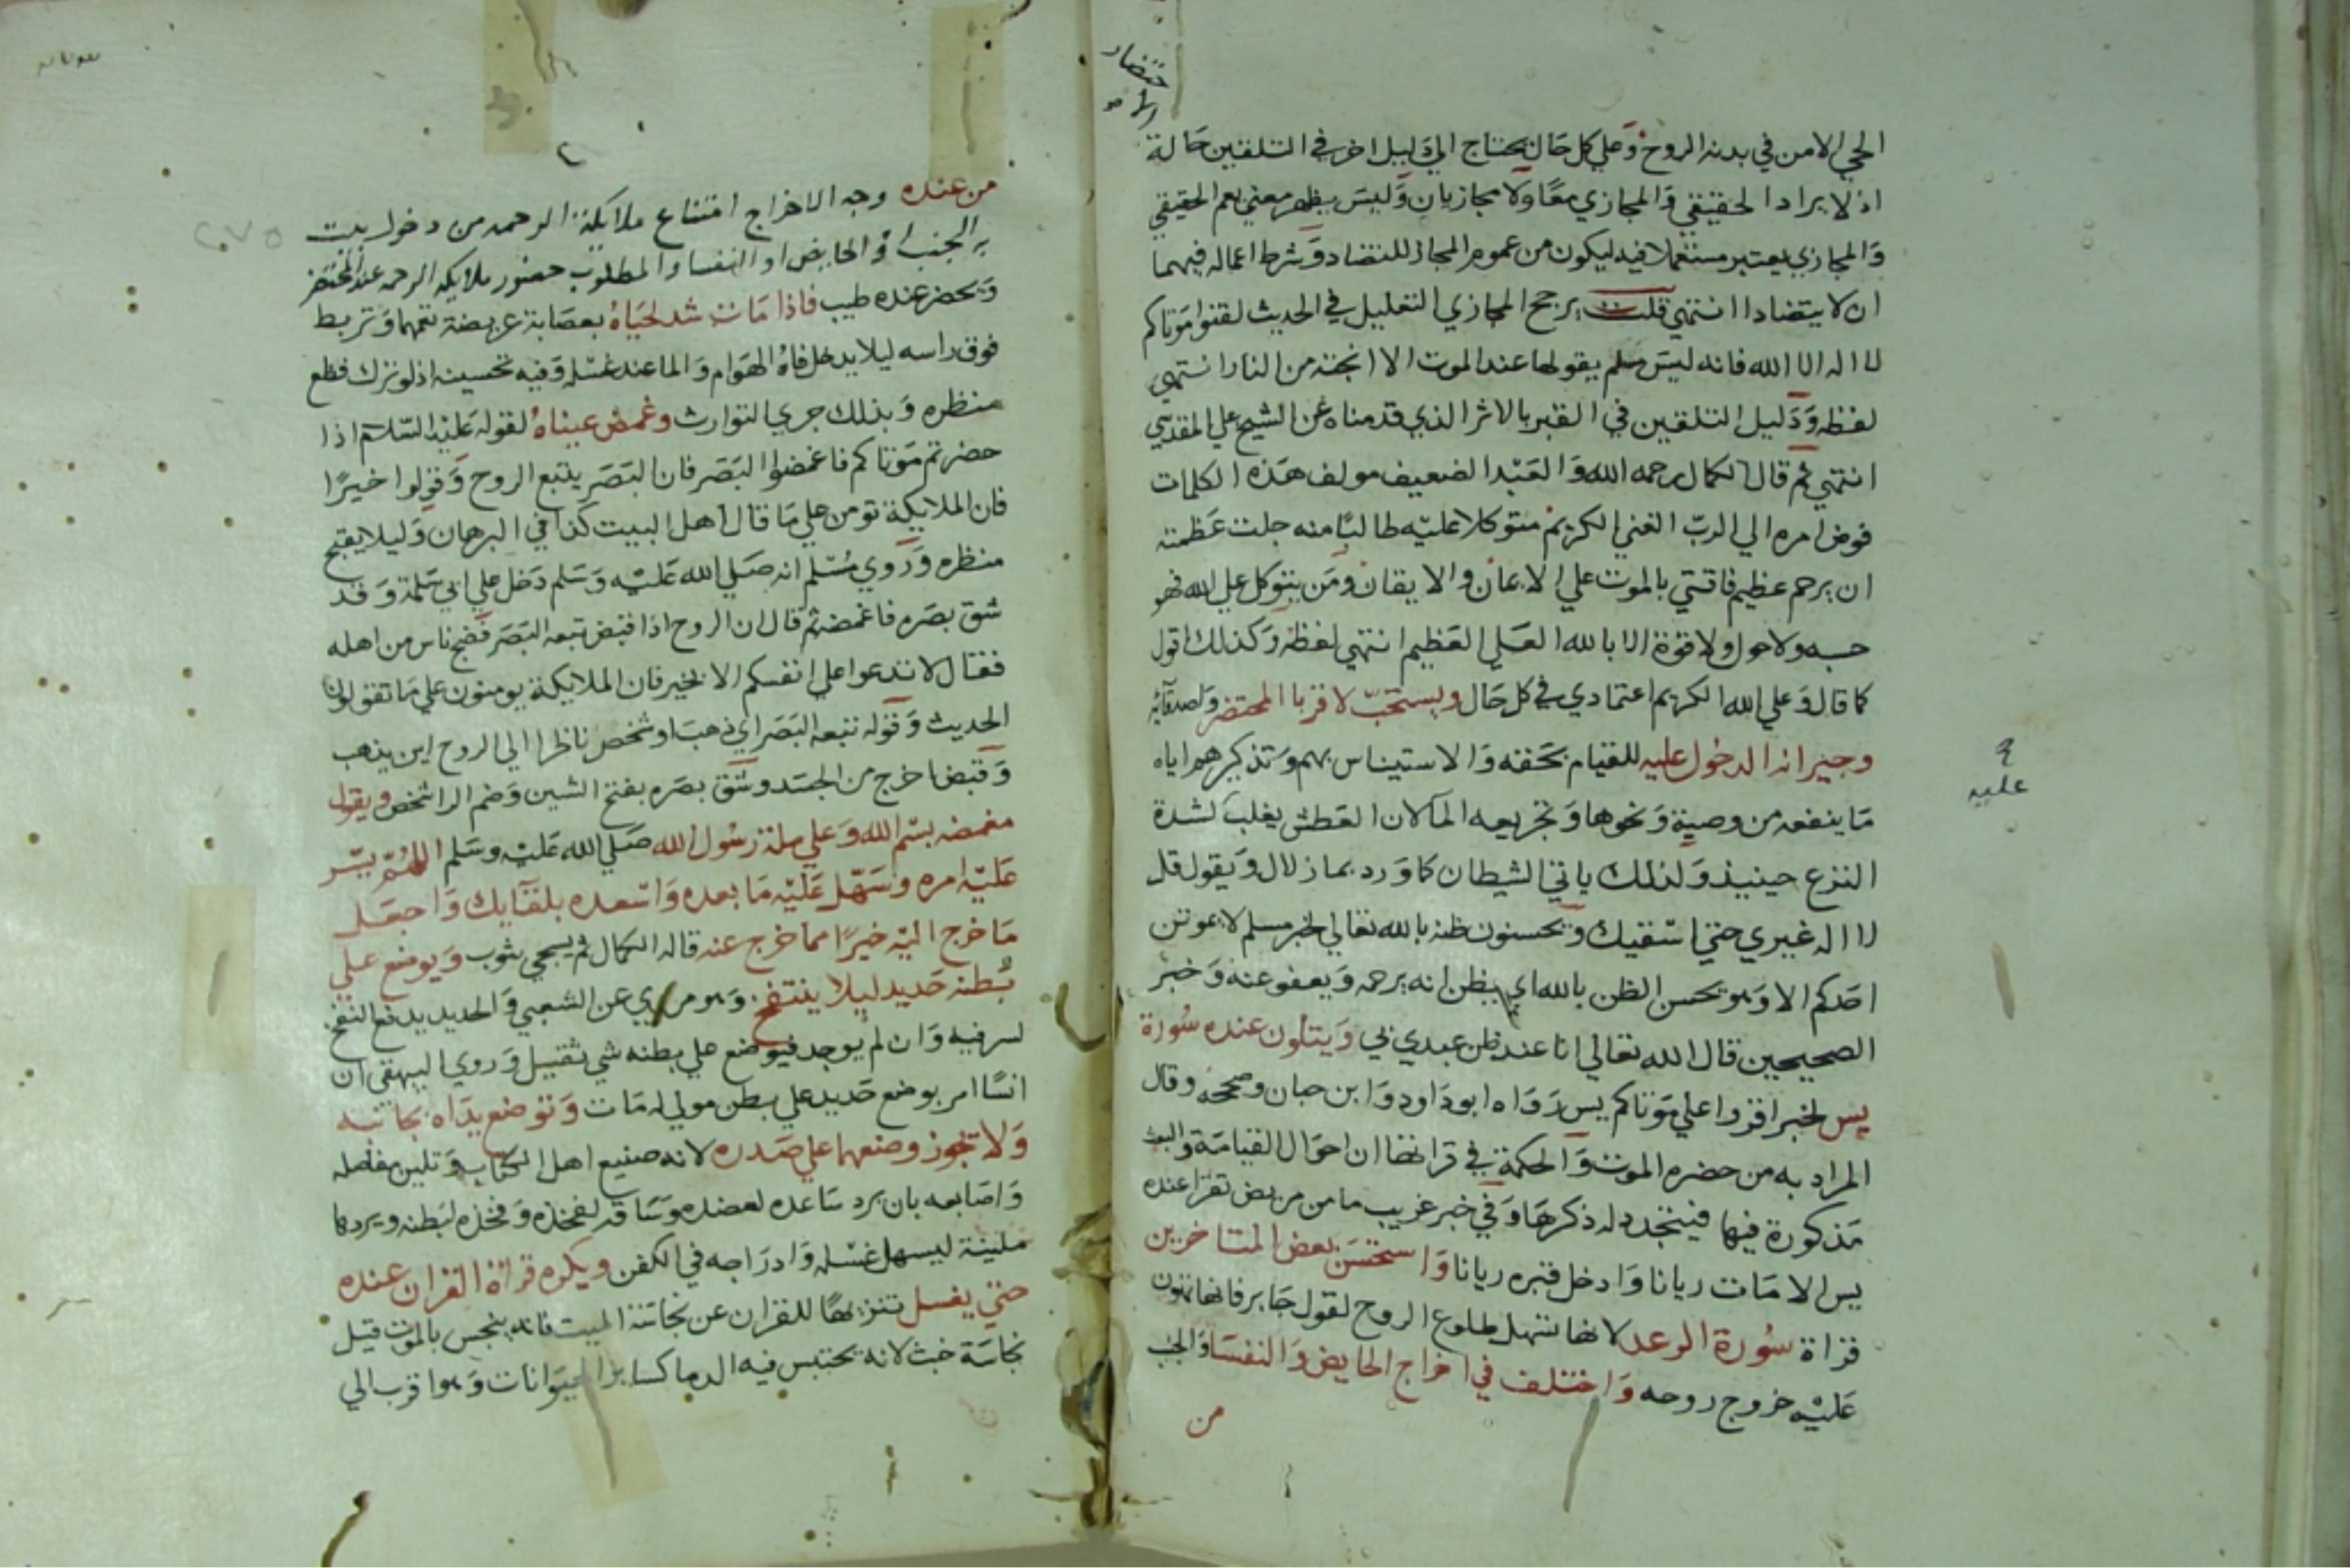 الحي الا من في بدنه الروح وعلي كل حال يحتاج الي دليل اخر في التلقين حالة
اذ لا يراد الحقيقي والمجازي معًا ولا مجازيان وليس يظهر معني يعم الحقيقي
والمجازي يعتبر مستعملا فيه ليكون من عموم المجاز للتضاد وشرط اعماله فيهما
ان لا يتضادا انتهي قلت يرجح المجازي التعليل في الحديث لقنوا موتاكم
لا اله الا الله فانه ليس مسلم يقولها عند الموت الا انجته من النار انتهي
لفظه ودليل التلقين في القبر بالاثر الذي قدمناه عن الشيخ علي المقدسي
انتهي ثم قال الكمال رحمه الله والعبد الضعيف مولف هذه الكلمات
فوض امره الي الرب الغني الكريم متوكلا عليه طالبًا منه جلت عظمته
ان يرحم عظيم فاقتي بالموت علي الايمان والايقان ومن يتوكل علي الله فهو
حسبه ولا حول ولا قوة الا بالله العلي العظيم انتهي لفظه وكذلك اقول
كما قال وعلي الله الكريم اعتمادي في كل حال ويستحب لاقربا المحتضر واصدقآئه
وجيرانه الدخول عليه للقيام بحقه والاستيناس بهم وتذكيرهم اياه
ما ينفعه من وصية ونحوها وتجريعه المآ لان العطش يغلب لشدة
النزع حينيذ ولذلك ياتي الشيطان كما ورد بما زلال ويقول قل
لا اله غيري حتي اسقيك ويحسنون ظنه بالله تعالي لخبر مسلم لا يموتن
احدكم الا وهو يحسن الظن بالله اي يظن انه يرحمه ويعفو عنه وخبر
الصحيحين قال الله تعالي انا عند ظن عبدي بي ويتلون عنده سورة
يس لخبر اقروا علي موتاكم يس رواه ابو داود وابن حبان وصححه وقال
المراد به من حضره الموت والحكمة في قراتها ان احوال القيامة والبعث
مذكورة فيها فيتجدد له ذكرها وفي خبر غريب ما من مريض تقرا عنده
يس الا مات ريانا وادخل قبره ريانا واستحسن بعض المتاخرين
قراة سورة الرعد لانها تسهل طلوع الروح لقول جابر فانها تهون
عليه خروج روحه واختلف في اخراج الحايض والنفسا والجنب
من
عليه
من عنده وجه الاخراج امتناع ملايكة الرحمه من دخول بيت
به الجنب او الحايض او النفسا والمطلوب حضور ملايكه الرحمه عند المحتضر
ويحضر عنده طيب فاذا مات شد لحياه بعصابة عريضة تعمهما وتربط
فوق راسه ليلا يدخل فاه الهوام والما عند غسله وفيه تحسينه اذ لو ترك فظع
منظره وبذلك جري التوارث وغمض عيناه لقوله عليه السلام اذا
حضرتم موتاكم فاغمضوا البصر فان البصر يتبع الروح وقولوا خيرًا
فان الملايكة تومن علي ما قال اهل البيت كذا في البرهان وليلا يقبح
منظره وروي مسلم انه صلي الله عليه وسلم دخل علي ابي سلمة وقد
شق بصره فاغمضه ثم قال ان الروح اذا قبض تبعه البصر فضج ناس من اهله
فقال لا تدعوا علي انفسكم الا بخير فان الملايكة يومنون علي ما تقولون
الحديث وقوله تبعه البصر اي ذهب او شخص ناظرا الي الروح اين يذهب
وقبض اخرج من الجسد وشق بصره بفتح الشين وضم الرا شخص ويقول
مغمضه بسم الله وعلي ملة رسول الله صلي الله عليه وسلم اللهم يسر
عليه امره وسهل عليه ما بعده واسعده بلقايك واجعل
ما خرج اليه خيرًا مما خرج عنه قاله الكمال ثم يسجي بثوب ويوضع علي
بطنه حديد ليلا ينتفخ وهو مروي عن الشعبي والحديد يدفع النفخ
لسر فيه وان لم يوجد فيوضع علي بطنه شي ثقيل وروي البيهقي ان
انسًا امر بوضع حديد علي بطن مولي له مات وتوضع يداه بجانبه
ولا تجوز وضعهما علي صدره لانه صنيع اهل الكتاب وتلين مفاصله
واصابعه بان يرد ساعده لعضده وساقه لفخذه وفخذه لبطنه ويردها
ملينة ليسهل غسله وادراجه في الكفن ويكره قراة القران عنده
حتي يغسل تنزيهًا للقران عن نجاسة الميت فانه ينجس بالموت قيل
نجاسة خبث لانه يحتبس فيه الدما كساير الحيوانات وهو اقرب الي